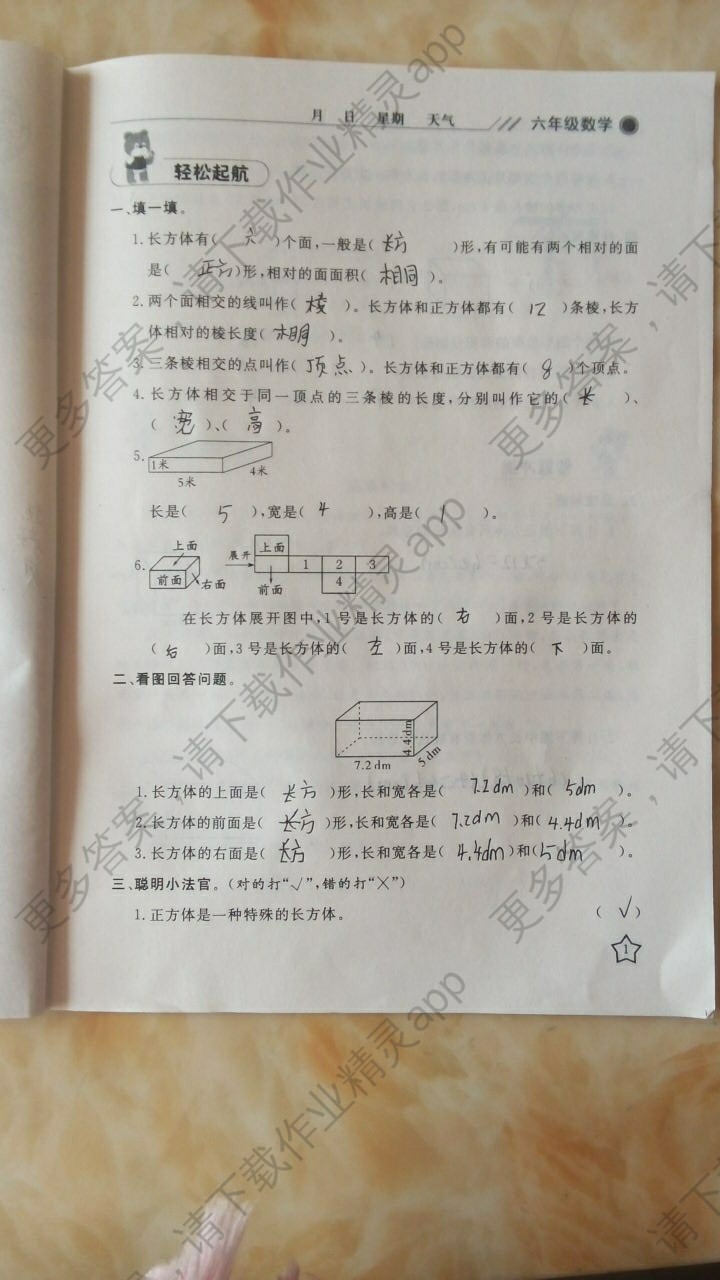 月 日 星期 天气 六年级数学
轻松起航
一、填一填。
1.长方体有( 六 )个面,一般是( 长方 )形,有可能有两个相对的面
是( 正方 )形,相对的面面积( 相同 )。
2.两个面相交的线叫作( 棱 )。长方体和正方体都有( 12 )条棱,长方
体相对的棱长度( )。
3.三条棱相交的点叫作( 顶点 )。长方体和正方体都有( 8 )个顶点。
4.长方体相交于同一顶点的三条棱的长度,分别叫作它的( 长 )、
( 宽 )、( 高 )。
5.
1米
5米
4米
长是( 5 ),宽是( 4 ),高是( 1 )。
6.
上面
前面
右面
展开
上面
1 2 3
4
前面
在长方体展开图中,1号是长方体的( 右 )面,2号是长方体的
( 后 )面,3号是长方体的( 左 )面,4号是长方体的( 下 )面。
二、看图回答问题。
4.4 dm
7.2 dm
5 dm
1.长方体的上面是( 长方 )形,长和宽各是( 7.2dm )和( 5dm )。
2.长方体的前面是( 长方 )形,长和宽各是( 7.2dm )和( 4.4dm )。
3.长方体的右面是( 长方 )形,长和宽各是( 4.4dm )和( 5dm )。
三、聪明小法官。(对的打“√”,错的打“×”)
1.正方体是一种特殊的长方体。 ( √ )
1
更多答案,请下载作业精灵app
更多答案,请下载作业精灵app
更多答案,请下载作业精灵app
更多答案,请下载作业精灵app